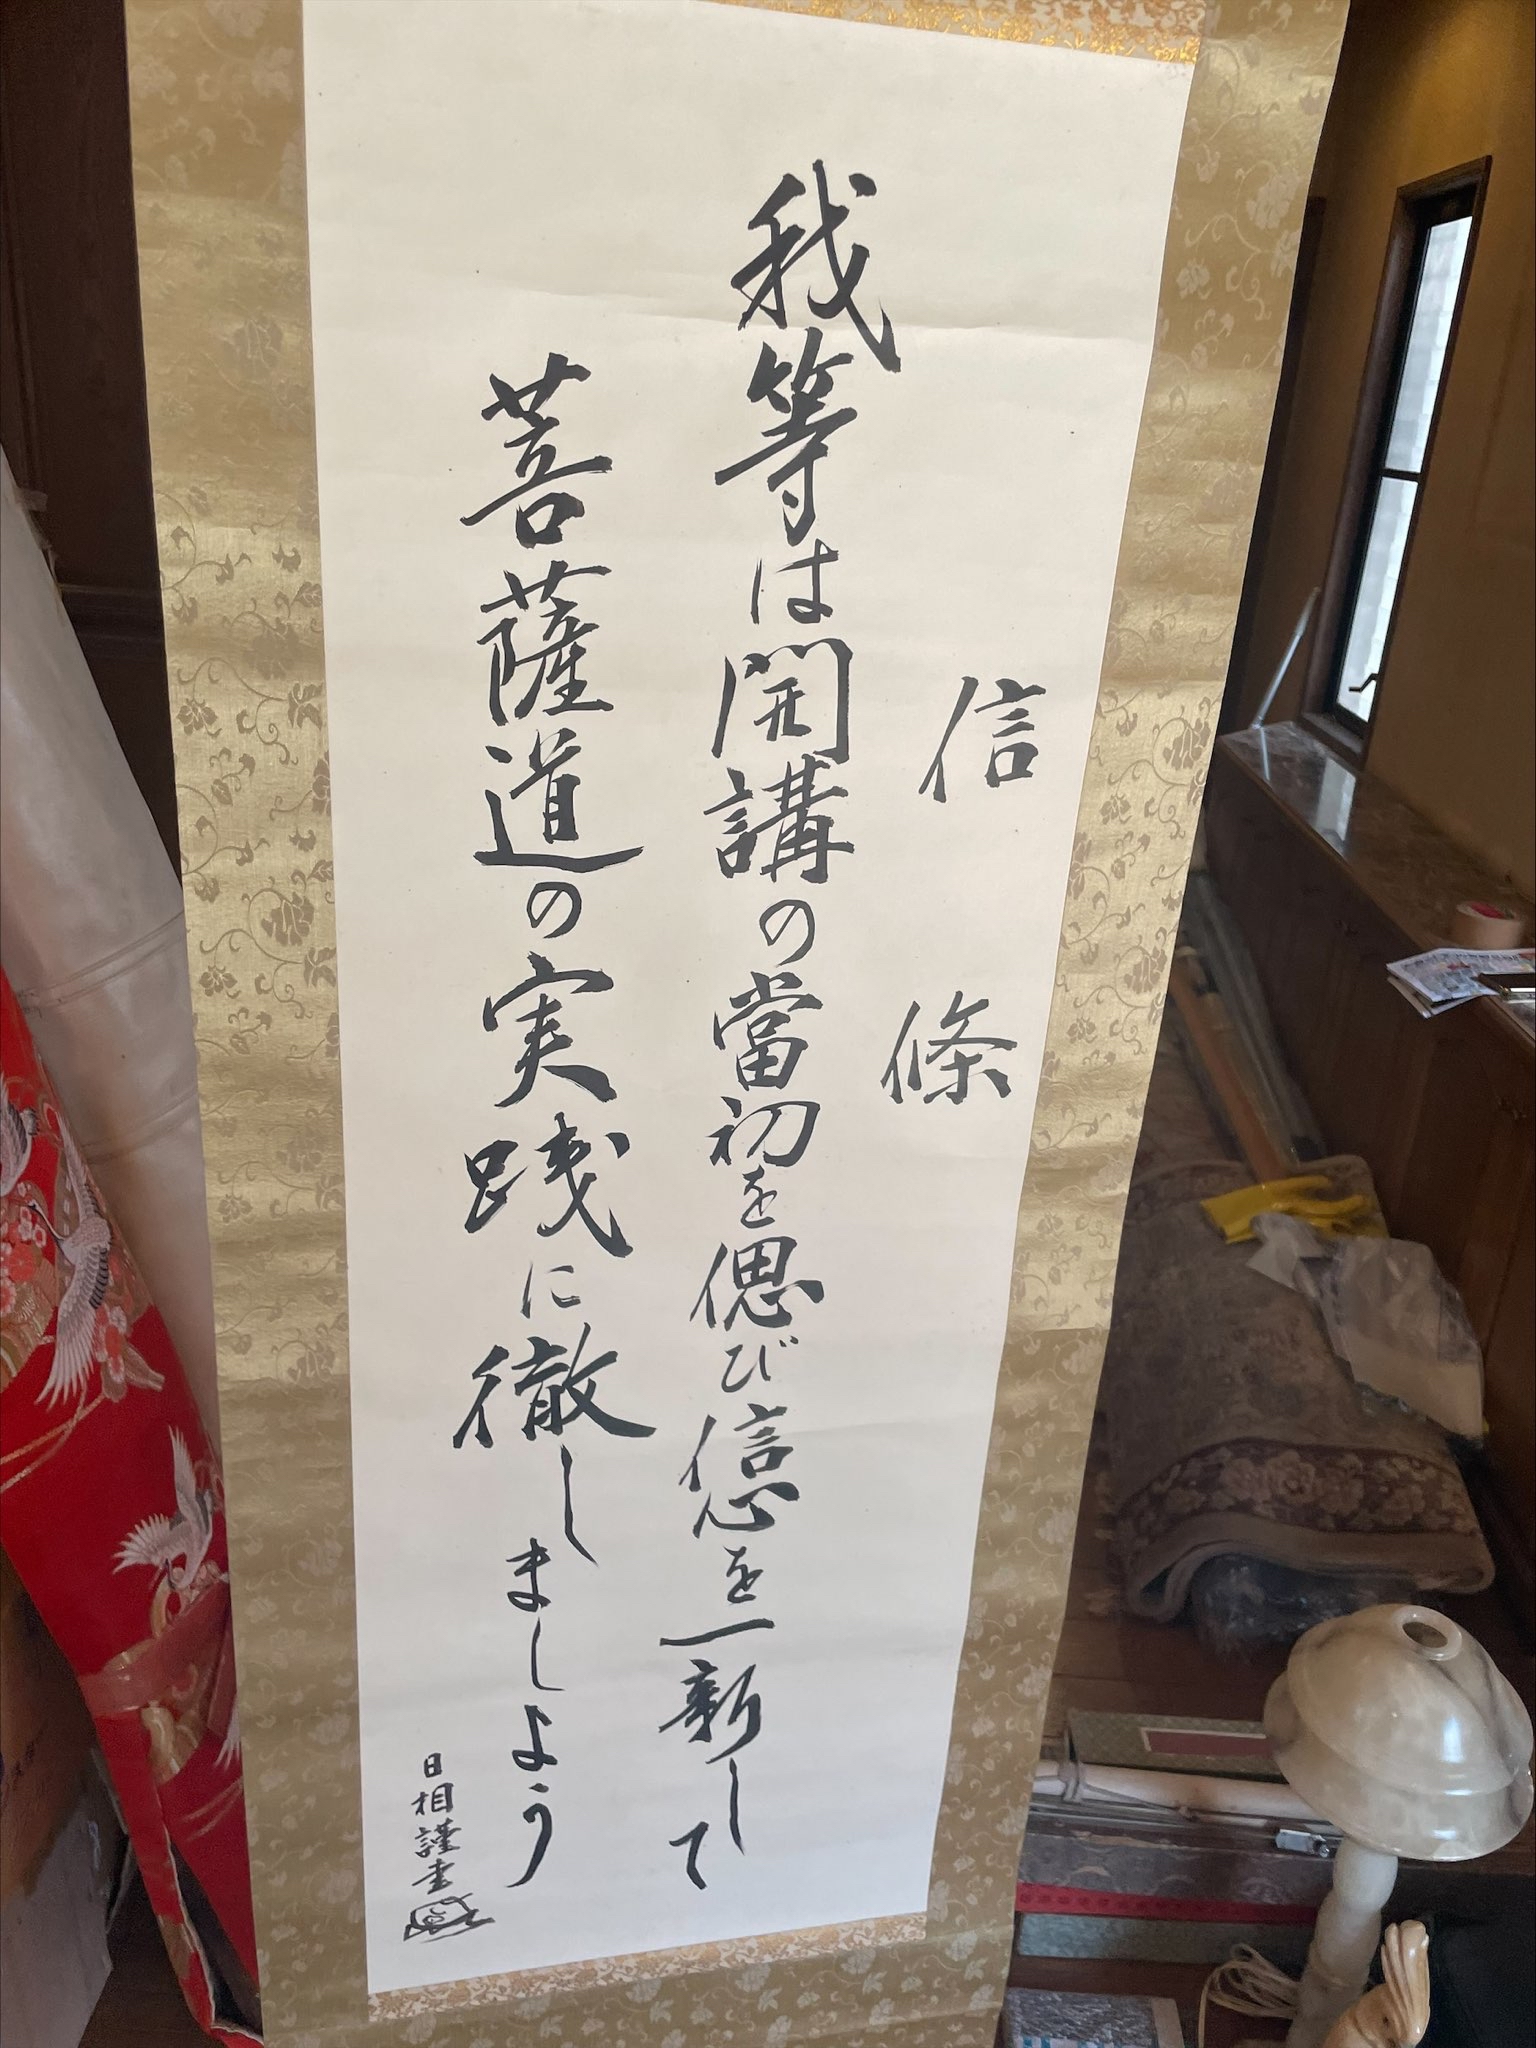 信條
我等は開講の當初を偲び信心を一新して
菩薩道の実践に徹しましょう
日相謹書